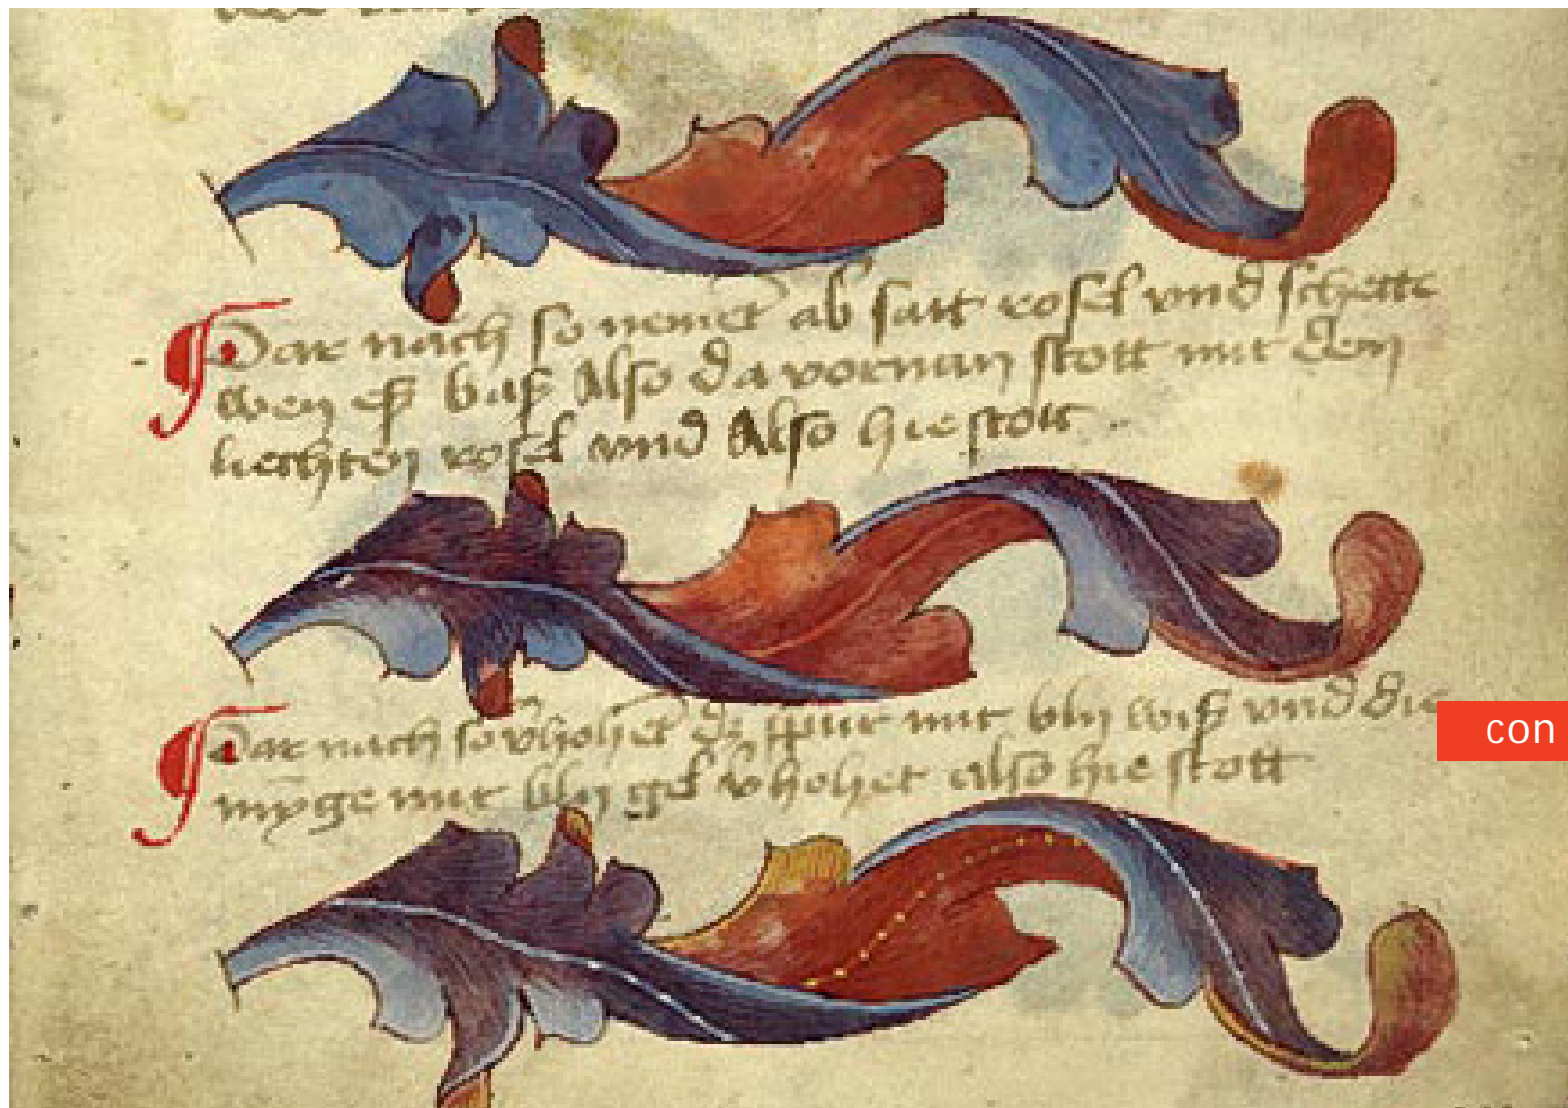 Dar nach so nemet ab satt rosel vnd schette
wen es bas Also da vornan stott mit den
liechten rosel vnd Also hie stott
Dar nach so vhohet di mit bly wis vnd die
mit bly gel vhohet also hie stott
con